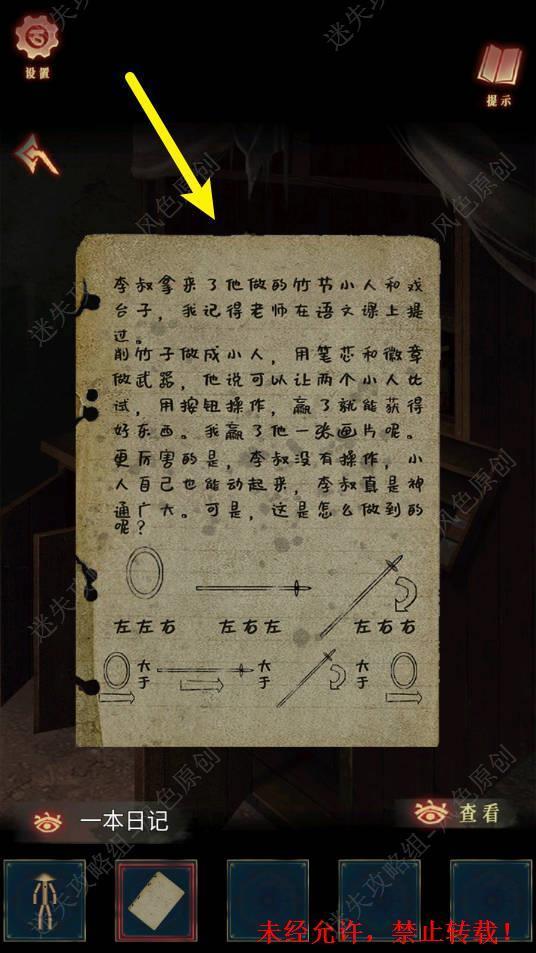 设置
提示
李叔拿来了他做的竹节小人和戏
台子，我记得老师在语文课上提
过。
削竹子做成小人，用笔芯和徽章
做武器，他说可以让两个小人比
试，用按钮操作，赢了就能获得
好东西。我赢了他一张画片呢。
更厉害的是，李叔没有操作，小
人自己也能动起来，李叔真是神
通广大。可是，这是怎么做到的
呢？
左左右 左右左 左右右
大于 大于 大于
一本日记
查看
未经允许，禁止转载！
迷失攻略组
风色原创